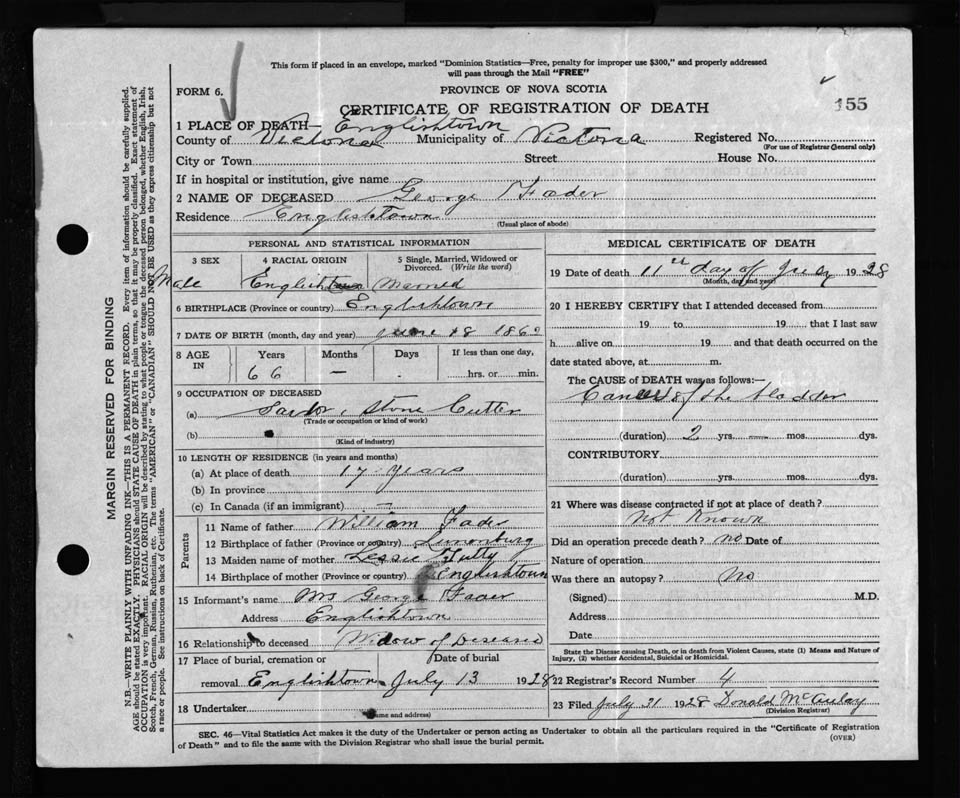 This form if placed in an envelope, marked "Dominion Statistics—Free, penalty for improper use $300," and properly addressed
will pass through the Mail "FREE"
FORM 6.
PROVINCE OF NOVA SCOTIA
CERTIFICATE OF REGISTRATION OF DEATH
155
1 PLACE OF DEATH— Englishtown
County of Victoria Municipality of Victoria Registered No.
(For use of Registrar General only)
City or Town Street House No.
If in hospital or institution, give name
2 NAME OF DECEASED George Fader
Residence Englishtown
(Usual place of abode)
PERSONAL AND STATISTICAL INFORMATION
3 SEX 4 RACIAL ORIGIN 5 Single, Married, Widowed or
Divorced. (Write the word)
Male English Married
6 BIRTHPLACE (Province or country) Englishtown
7 DATE OF BIRTH (month, day and year) June 18
8 AGE IN Years Months Days If less than one day,
66 — . hrs. or min.
9 OCCUPATION OF DECEASED
(a) Stone Cutter
(Trade or occupation or kind of work)
(b)
(Kind of industry)
10 LENGTH OF RESIDENCE (in years and months)
(a) At place of death 17 years
(b) In province
(c) In Canada (if an immigrant)
Parents
11 Name of father William Fader
12 Birthplace of father (Province or country) Lunonburg
13 Maiden name of mother
14 Birthplace of mother (Province or country) Englishtown
15 Informant's name Mrs George Fader
Address Englishtown
16 Relationship to deceased Widow of Deseased
17 Place of burial, cremation or Date of burial
removal Englishtown July 13 1928
18 Undertaker
(Name and address)
MEDICAL CERTIFICATE OF DEATH
19 Date of death 11th day of July 1928
(Month, day and year)
20 I HEREBY CERTIFY that I attended deceased from
19 to 19 that I last saw
h alive on 19 and that death occurred on the
date stated above, at m.
The CAUSE of DEATH was as follows:—
Cancer of the bladder
(duration) 2 yrs. — mos. dys.
CONTRIBUTORY
(duration) yrs. mos. dys.
21 Where was disease contracted if not at place of death?
Not Known
Did an operation precede death? no Date of
Nature of operation
Was there an autopsy? No
(Signed) M.D.
Address
Date
State the Disease causing Death, or in death from Violent Causes, state (1) Means and Nature of
Injury, (2) whether Accidental, Suicidal or Homicidal.
22 Registrar's Record Number 4
23 Filed July 31 1928 Donald McAulay
(Division Registrar)
SEC. 46—Vital Statistics Act makes it the duty of the Undertaker or person acting as Undertaker to obtain all the particulars required in the "Certificate of Registration
of Death" and to file the same with the Division Registrar who shall issue the burial permit.
(OVER)
MARGIN RESERVED FOR BINDING
N.B.—WRITE PLAINLY WITH UNFADING INK—THIS IS A PERMANENT RECORD. Every item of information should be carefully supplied.
AGE should be stated EXACTLY. PHYSICIANS should STATE CAUSE OF DEATH in plain terms, so that it may be properly classified. Exact statement of
OCCUPATION is very important. RACIAL ORIGIN will be described by stating to what people or tongue the deceased person belonged, whether English, Irish,
Scotch, French, German, Russian, Ruthenian, etc. The terms "AMERICAN" or "CANADIAN" SHOULD NOT BE USED as they express citizenship but not
a race or people. See instructions on back of Certificate.